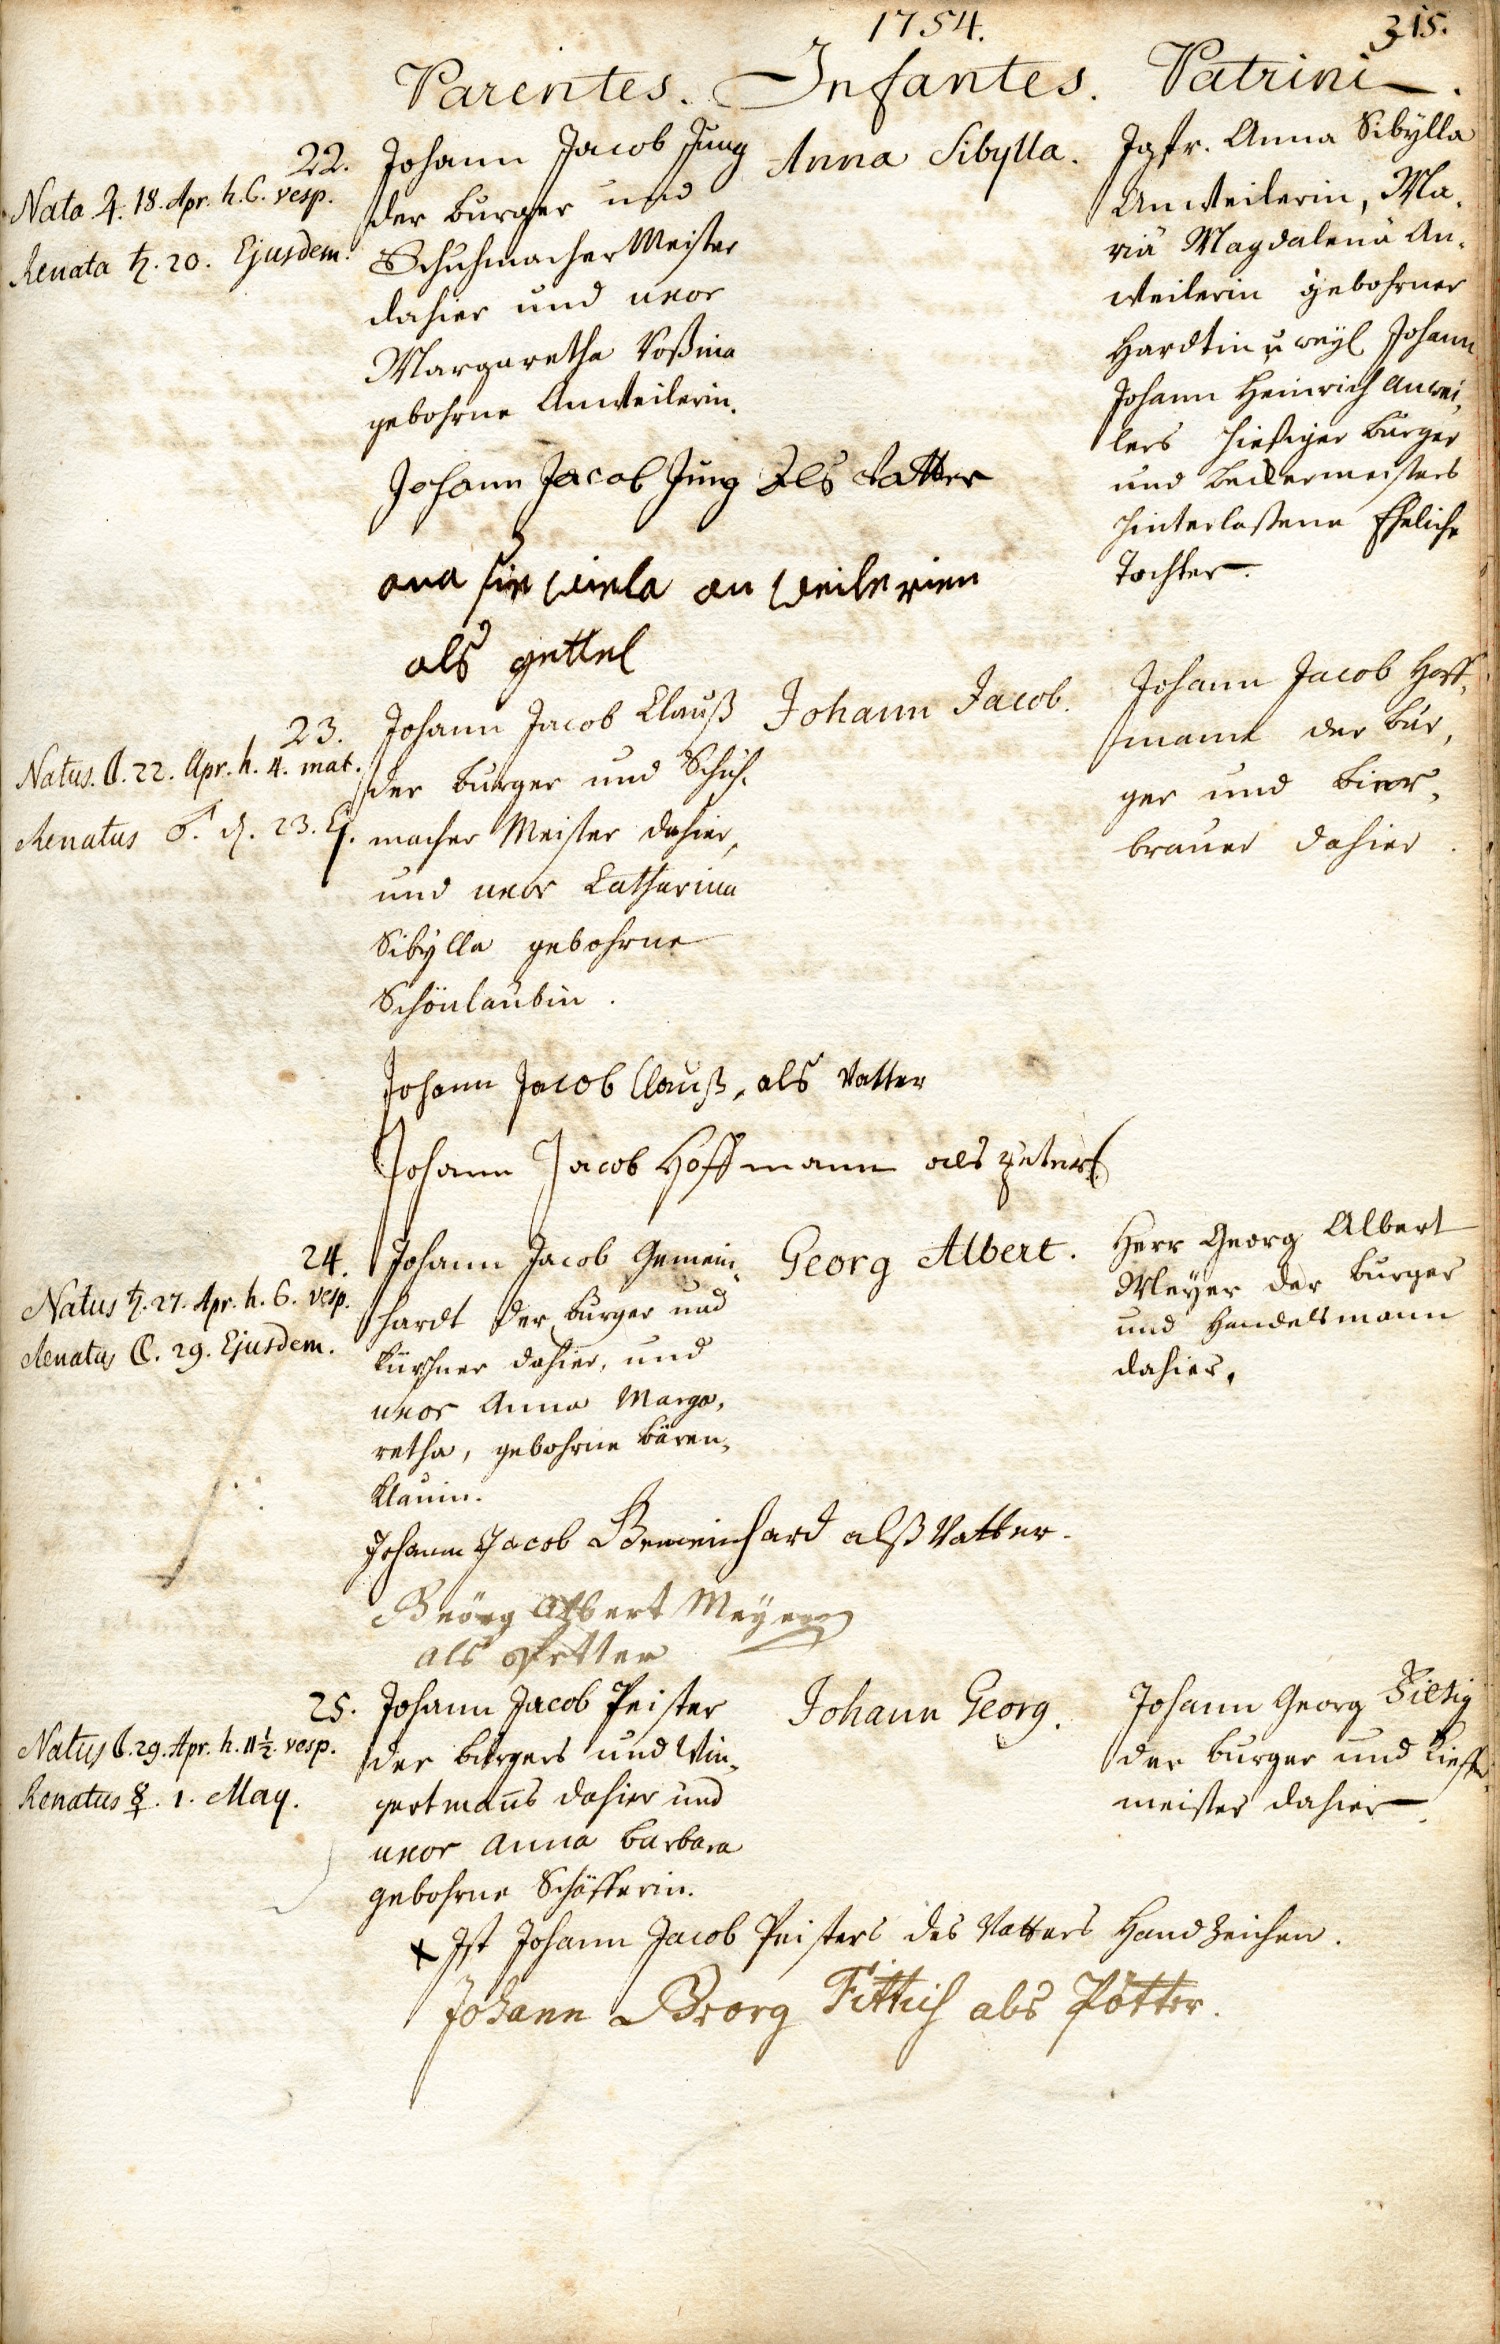 1754.
315.
Parentes. Infantes. Patrini.
22.
Nata ♃. 18. Apr. h. 6. vesp.
Renata ♄. 20. Ejusdem.
Johann Jacob Jung
der burger und
Schuhmacher Meister
dahier und uxor
Margaretha Rosina
gebohrne Anweilerin.
Anna Sibylla.
Jgfr. Anna Sibylla
Anweilerin, Ma-
riä Magdalenä An-
weilerin gebohrner
Hardtin u weyl Johann
Johann Heinrich Anwei-
lers hiesiger burger
und beckermeisters
hinterlaßene Eheliche
Tochter.
Johann Jacob Jung Als Vatter
ana sie wiela an weilerien
als gettel
23.
Natus. ☾. 22. Apr. h. 4. mat.
Renatus ♂. d. 23. Ej.
Johann Jacob Clauß
der burger und Schuh-
macher Meister dahier,
und uxor Catharina
Sibylla gebohrne
Schönlaubin.
Johann Jacob.
Johann Jacob Hoff-
mann der bür-
ger und bier-
brauer dahier.
Johann Jacob Clauß, als Vatter
Johann Jacob Hoffmann als petter
24.
Natus ♄. 27. Apr. h. 6. vesp.
Renatus ☾. 29. Ejusdem.
Johann Jacob Gemein-
hardt der burger und
Kürschner dahier, und
uxor Anna Marga-
retha, gebohrne Bären-
klauin.
Georg Albert.
Herr Georg Albert
Meyer der burger
und Handelsmann
dahier.
Johann Jacob Gemeinhard alß Vatter.
Geörg Albert Meyer
als Petter
25.
Natus ☾. 29. Apr. h. 11½. vesp.
Renatus ☿. 1. May.
Johann Jacob Peister
der burgers und Win-
gertmanns dahier und
uxor Anna barbara
gebohrne Schäfferin.
Johann Georg.
Johann Georg
der burger und Kieffer
meister dahier.
x Ist Johann Jacob Peisters des Vatters Handzeichen.
Johann Georg Fittich als Pötter.